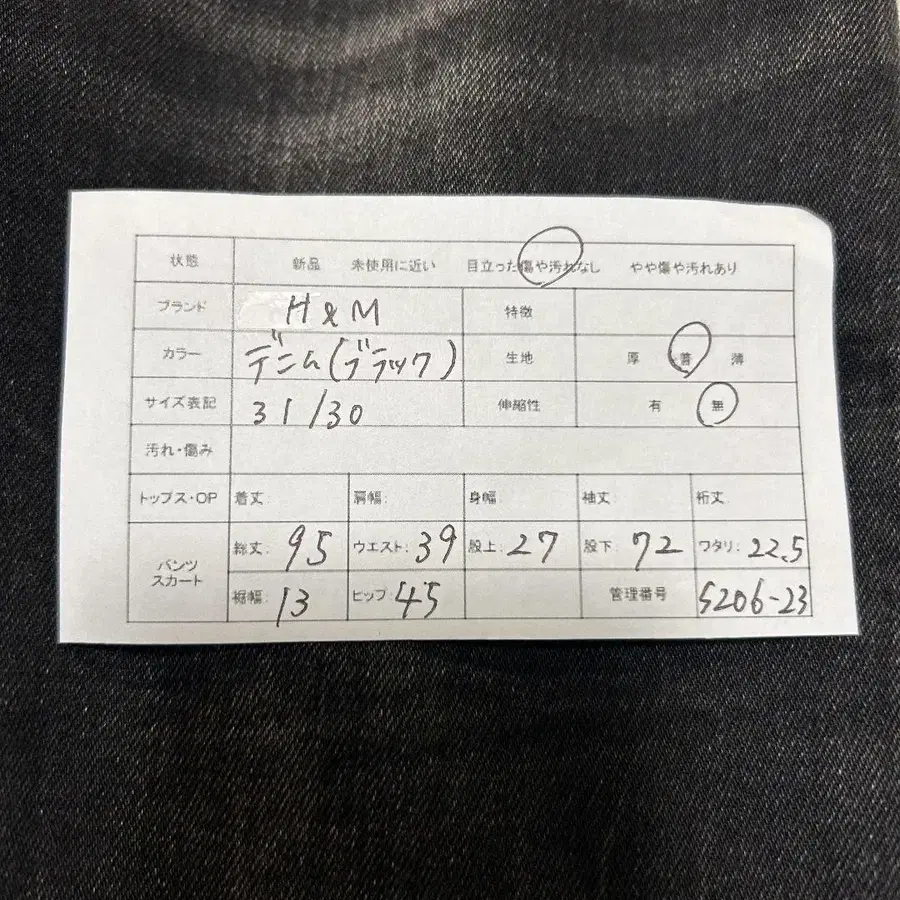 状態 新品 未使用に近い 目立った傷や汚れなし やや傷や汚れあり
ブランド H&M 特徴
カラー デニム(ブラック) 生地 厚 普 薄
サイズ表記 31/30 伸縮性 有 無
汚れ・傷み
トップス・OP 着丈: 肩幅: 身幅: 袖丈: 裄丈:
パンツ スカート 総丈: 95 ウエスト: 39 股上: 27 股下: 72 ワタリ: 22.5
裾幅: 13 ヒップ: 45 管理番号 S206-23